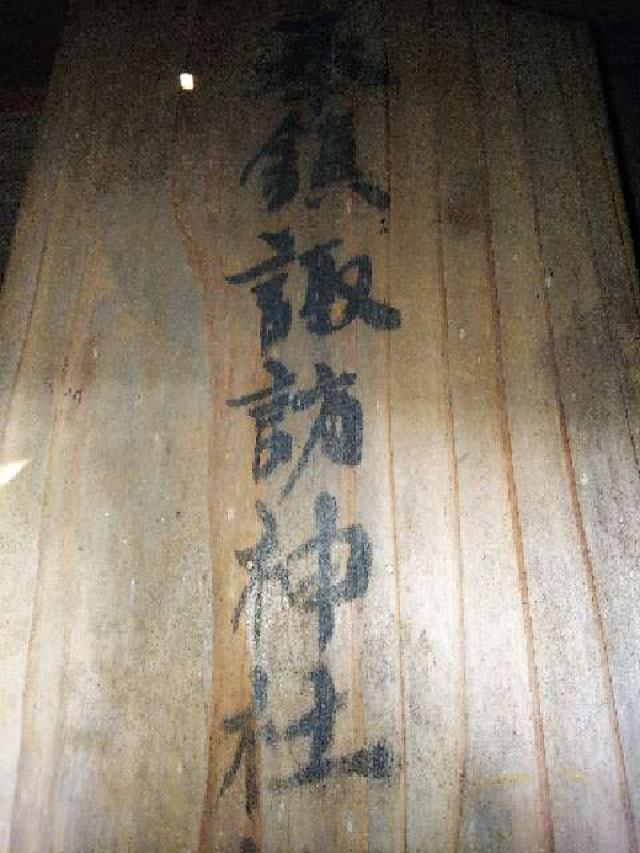 奉鎮諏訪神社